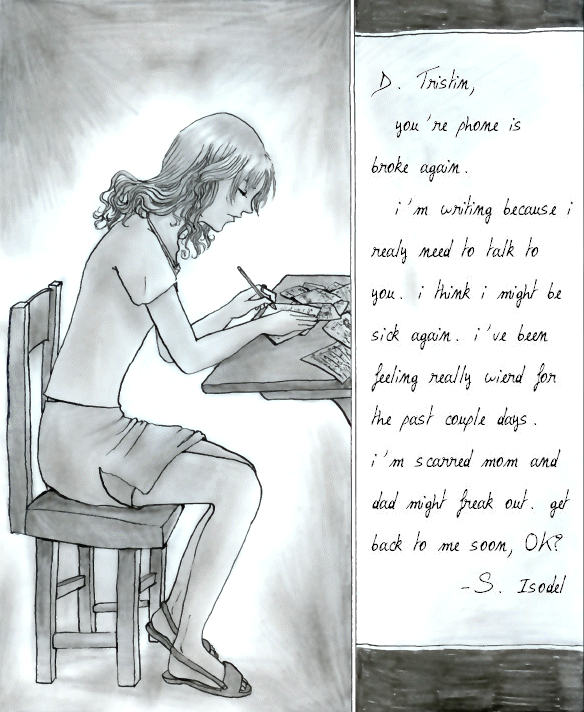 D. Tristin,
you're phone is
broke again.
i'm writing because i
realy need to talk to
you. i think i might be
sick again. i've been
feeling really wierd for
the past couple days.
i'm scarred mom and
dad might freak out. get
back to me soon, OK?
-S. Isodel